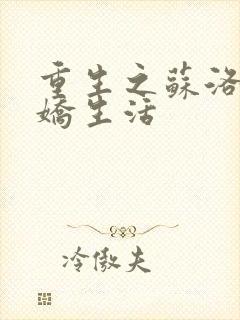 重生之蘇洛
嬌生活
冷傲夫